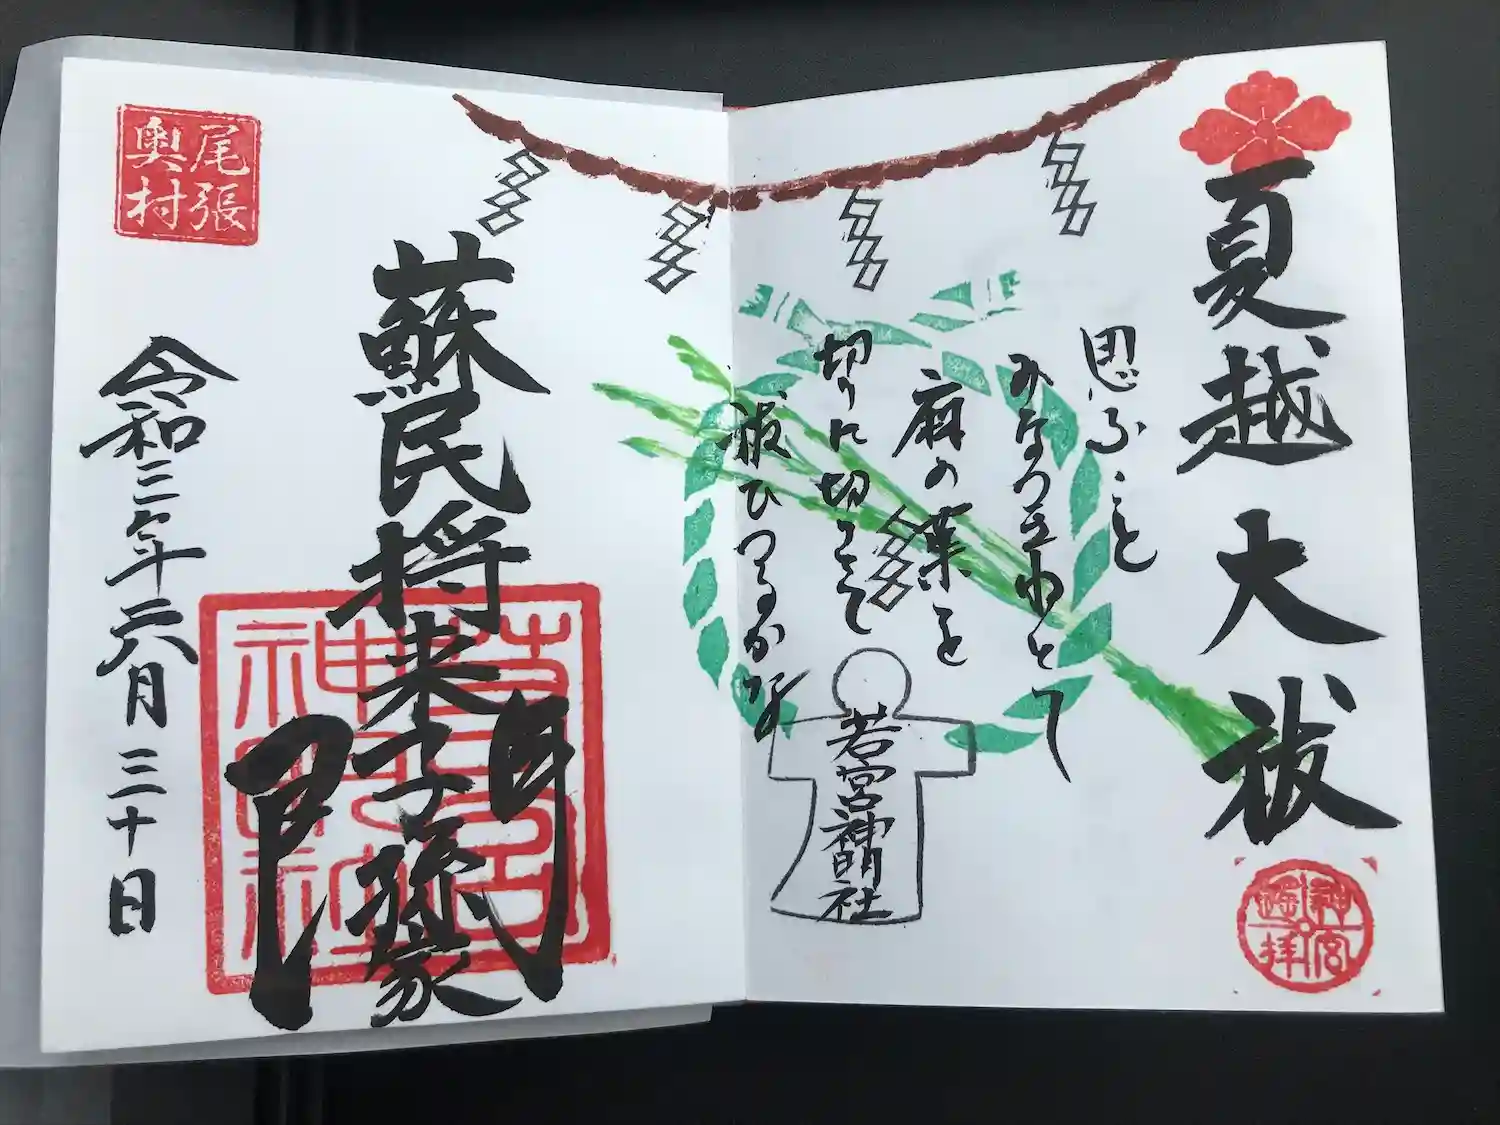 夏越大祓
神宮
遙拝
思ふこと
みなつきねとて
麻の葉を
切りに切りても
祓ひつるかな
若宮神明社
蘇民将来子孫家
門
若宮
神明社
尾張
奥村
令和二年六月三十日